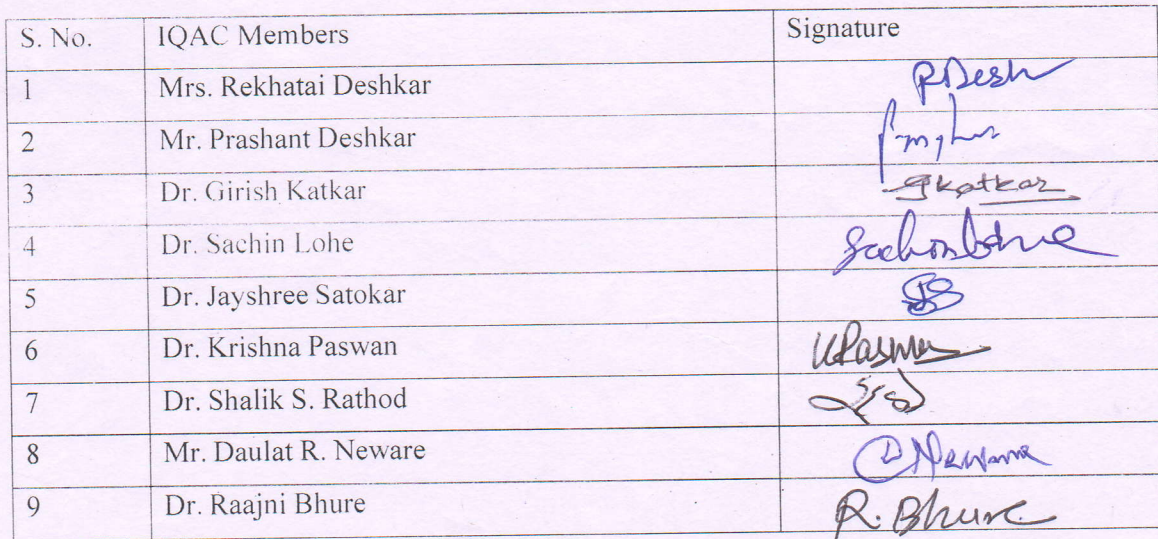 S. No. IQAC Members Signature
1 Mrs. Rekhatai Deshkar RDesh
2 Mr. Prashant Deshkar
3 Dr. Girish Katkar gkatkar
4 Dr. Sachin Lohe
5 Dr. Jayshree Satokar
6 Dr. Krishna Paswan
7 Dr. Shalik S. Rathod
8 Mr. Daulat R. Neware
9 Dr. Raajni Bhure R. Bhure